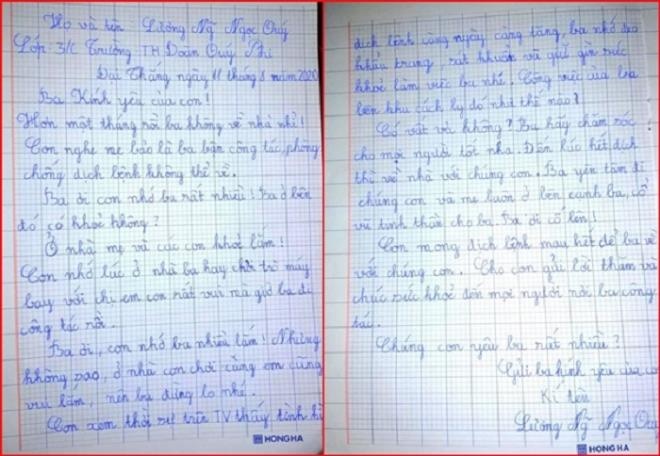 Họ và tên: Lương Mỹ Ngọc Quý
Lớp: 3/C Trường TH Đoàn Quý Phi
Đại Thắng ngày 11 tháng 8 năm 2020
Ba kính yêu của con!
Hơn một tháng rồi ba không về nhà nhỉ!
Con nghe mẹ bảo là ba bận công tác, phòng
chống dịch bệnh không thể về.
Ba ơi con nhớ ba rất nhiều! Ba ở bên
đó có khoẻ không?
Ở nhà mẹ và các con khoẻ lắm!
Con nhớ lúc ở nhà ba hay chơi trò máy
bay với chị em con rất vui mà giờ ba đi
công tác rồi.
Ba ơi, con nhớ ba nhiều lắm! Nhưng
không sao, ở nhà con chơi cùng em cũng
vui lắm, nên ba đừng lo nhé.
Con xem thời sự trên TV thấy tình hì
HONG HA
dịch bệnh càng ngày càng tăng, ba nhớ đeo
khẩu trang, sát khuẩn và giữ gìn sức
khoẻ làm việc ba nhé. Công việc của ba
bên khu cách ly đó như thế nào?
Có vất vả không? Ba hãy chăm sóc
cho mọi người tốt nha. Đến lúc hết dịch
thì về nhà với chúng con. Ba yên tâm đi
chúng con và mẹ luôn ở bên cạnh ba, cổ
vũ tinh thần cho ba. Ba ơi cố lên!
Con mong dịch bệnh mau hết để ba về
với chúng con. Cho con gửi lời thăm và
chúc sức khoẻ đến mọi người nơi ba công
tác.
Chúng con yêu ba rất nhiều?
Gửi ba kính yêu của co
Kí tên
Lương Mỹ Ngọc Quý
HONG HA